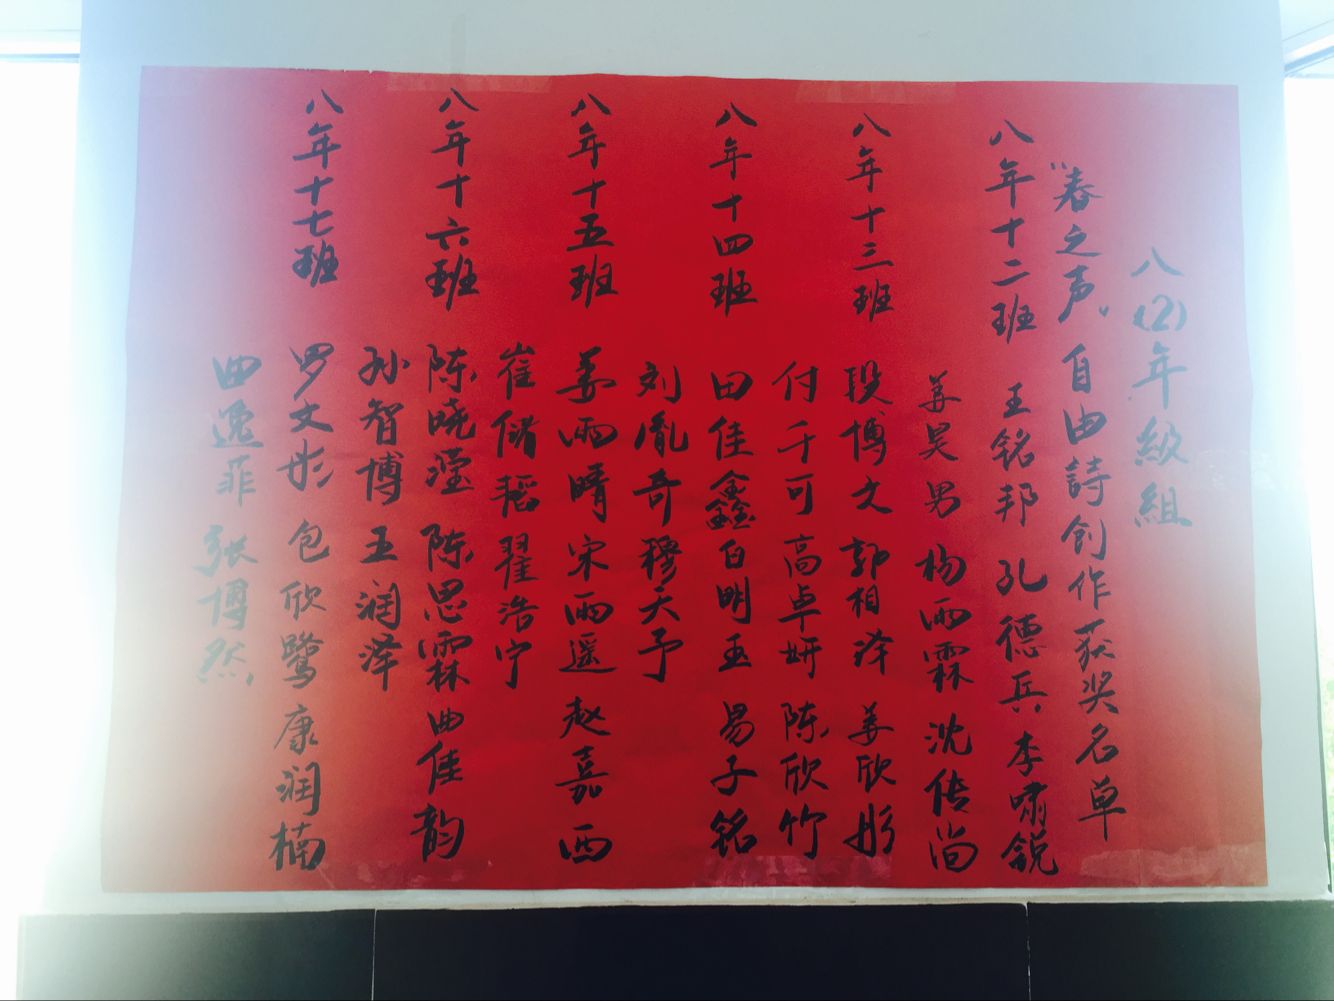 八(2)年級組
"春之声"自由詩创作获奖名单
八年十二班 王铭邦 孔德兵 李啸锐
姜昊男 杨雨霖 沈传尚
八年十三班 段博文 郭相泽 姜欣彤
付千可 高卓妍 陈欣竹
八年十四班 田佳鑫 白明玉 易子铭
刘胤奇 穆天予
八年十五班 姜雨晴 宋雨遥 赵嘉西
崔储韬 翟浩宁
八年十六班 陈晓滢 陈思霖 曲佳韵
孙智博 王润泽
八年十七班 罗文彤 包欣鹭 康润楠
曲逸菲 张博然